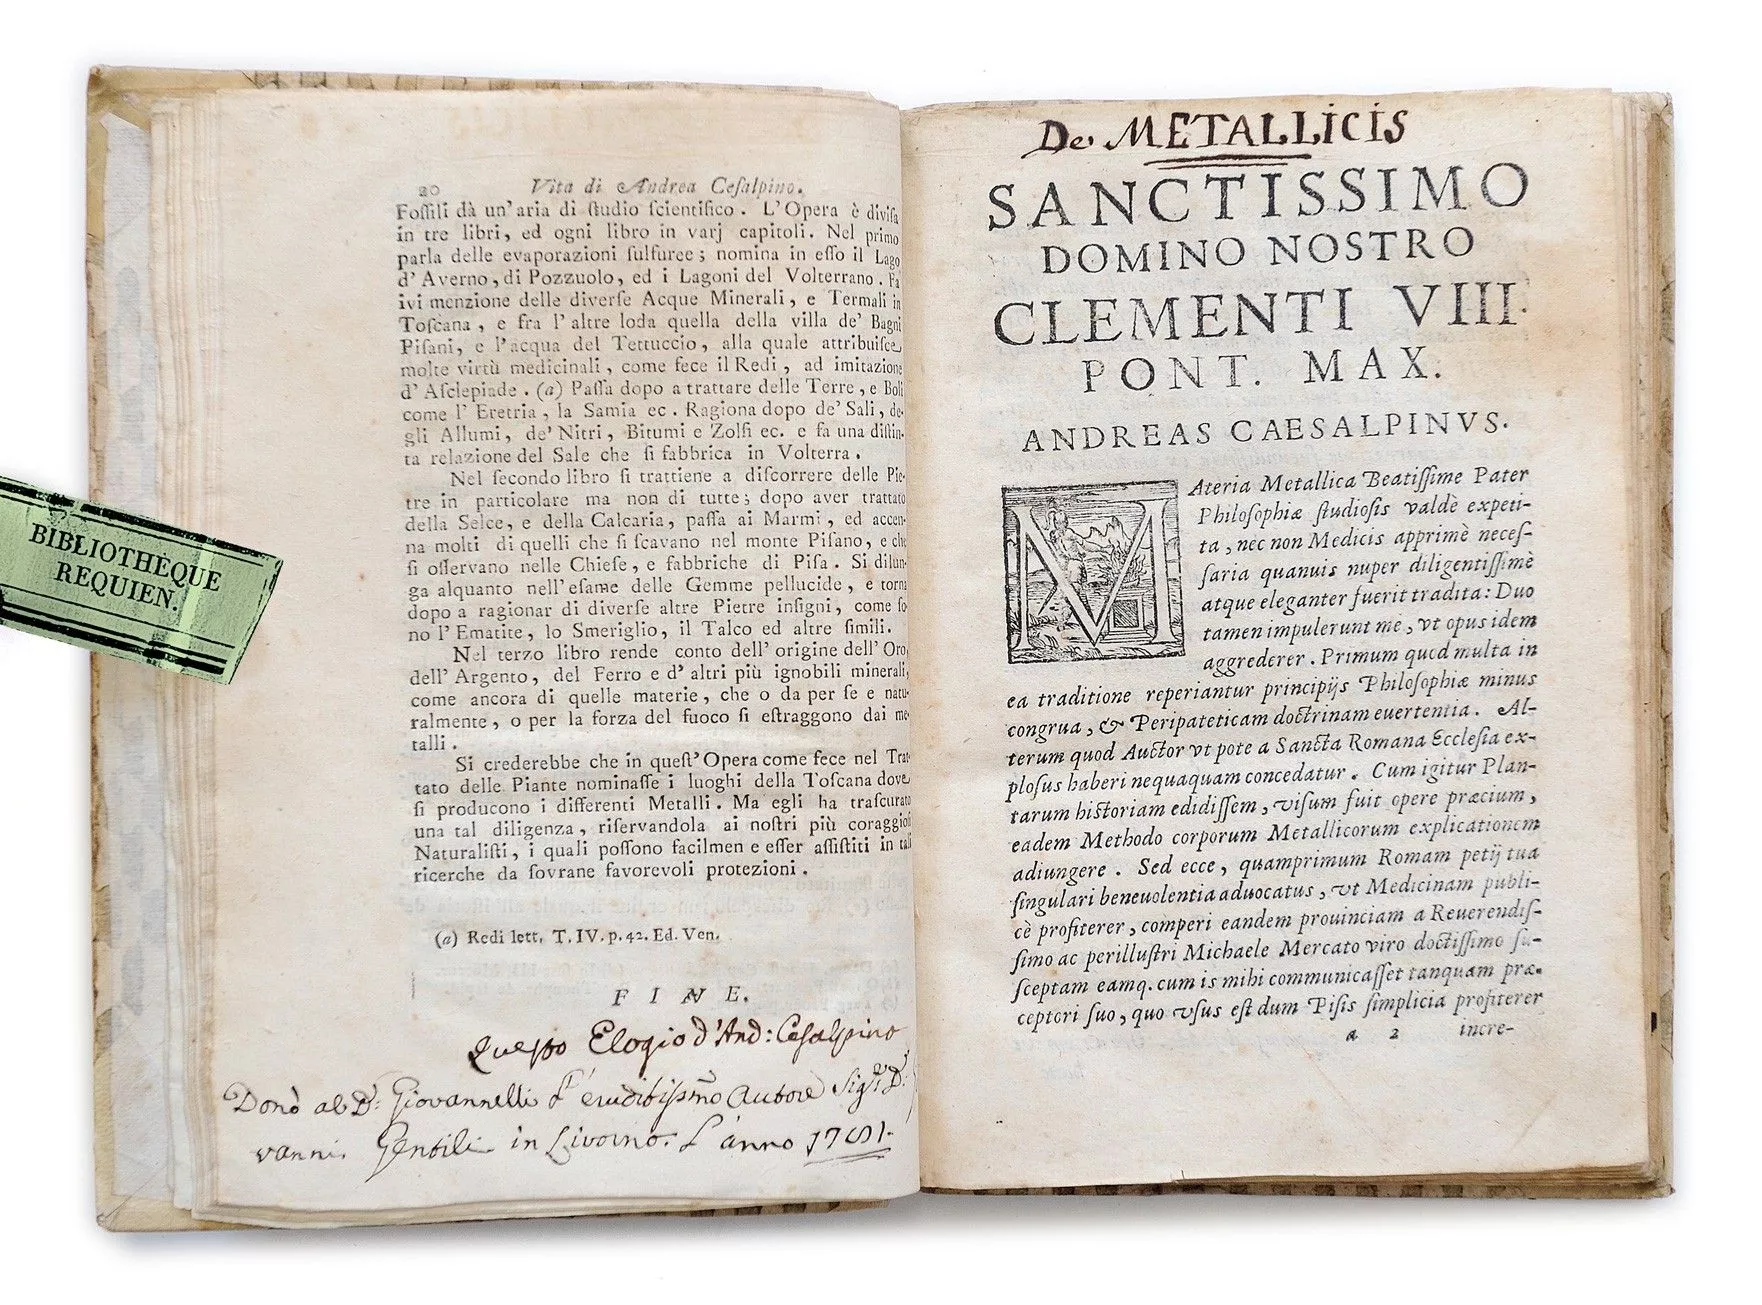 20 Vita di Andrea Ceſalpino.
Foſſili dà un'aria di ſtudio ſcientifico. L'Opera è diviſa
in tre libri, ed ogni libro in varj capitoli. Nel primo
parla delle evaporazioni ſulfuree; nomina in eſſo il Lago
d'Averno, di Pozzuolo, ed i Lagoni del Volterrano. Fa
ivi menzione delle diverſe Acque Minerali, e Termali in
Toſcana, e fra l'altre loda quella della villa de' Bagni
Piſani, e l'acqua del Tettuccio, alla quale attribuiſce
molte virtù medicinali, come fece il Redi, ad imitazione
d'Aſclepiade. (a) Paſſa dopo a trattare delle Terre, e Boli
come l'Eretria, la Samia ec. Ragiona dopo de' Sali, de-
gli Allumi, de' Nitri, Bitumi e Zolfi ec. e fa una diſtin-
ta relazione del Sale che ſi fabbrica in Volterra.
Nel ſecondo libro ſi trattiene a diſcorrere delle Pie-
tre in particolare ma non di tutte; dopo aver trattato
della Selce, e della Calcaria, paſſa ai Marmi, ed accen-
na molti di quelli che ſi ſcavano nel monte Piſano, e che
ſi oſſervano nelle Chieſe, e fabbriche di Piſa. Si dilun-
ga alquanto nell'eſame delle Gemme pellucide, e torna
dopo a ragionar di diverſe altre Pietre inſigni, come ſo-
no l'Ematite, lo Smeriglio, il Talco ed altre ſimili.
Nel terzo libro rende conto dell'origine dell'Oro,
dell'Argento, del Ferro e d'altri più ignobili minerali,
come ancora di quelle materie, che o da per ſe e natu-
ralmente, o per la forza del fuoco ſi eſtraggono dai me-
talli.
Si crederebbe che in queſt'Opera come fece nel Trat-
tato delle Piante nominaſſe i luoghi della Toſcana dove
ſi producono i differenti Metalli. Ma egli ha traſcurato
una tal diligenza, riſervandola ai noſtri più coraggioſi
Naturaliſti, i quali poſſono facilmen e eſſer aſſiſtiti in tali
ricerche da ſovrane favorevoli protezioni.
(a) Redi lett. T. IV. p. 42. Ed. Ven.
F I N E.
Queſto Elogio d'And: Ceſalpino
Donò al Dr: Giovannelli l'eruditiſſmo Autore Sigr: Dr:
vanni Gentili in Livorno. L'anno
BIBLIOTHÈQUE
REQUIEN.
De METALLICIS
SANCTISSIMO
DOMINO NOSTRO
CLEMENTI VIII.
PONT. MAX.
ANDREAS CAESALPINVS.
MAteria Metallica Beatiſſime Pater
Philoſophiæ ſtudioſis valdè expeti-
ta, nec non Medicis apprimè neceſ-
ſaria quanuis nuper diligentiſſimè
atque eleganter fuerit tradita: Duo
tamen impulerunt me, vt opus idem
aggrederer. Primum quod multa in
ea traditione reperiantur principijs Philoſophiæ minus
congrua, & Peripateticam doctrinam euertentia. Al-
terum quod Auctor vt pote a Sancta Romana Eccleſia ex-
ploſus haberi nequaquam concedatur. Cum igitur Plan-
tarum hiſtoriam edidiſſem, viſum fuit opere præcium,
eadem Methodo corporum Metallicorum explicationem
adiungere. Sed ecce, quamprimum Romam petij tua
ſingulari beneuolentia aduocatus, vt Medicinam publi-
cè profiterer, comperi eandem prouinciam a Reuerendiſ-
ſimo ac perilluſtri Michaele Mercato viro doctiſſimo ſu-
ſceptam eamq. cum is mihi communicaſſet tanquam præ-
ceptori ſuo, quo vſus eſt dum Piſis ſimplicia profiterer
a 2 incre-